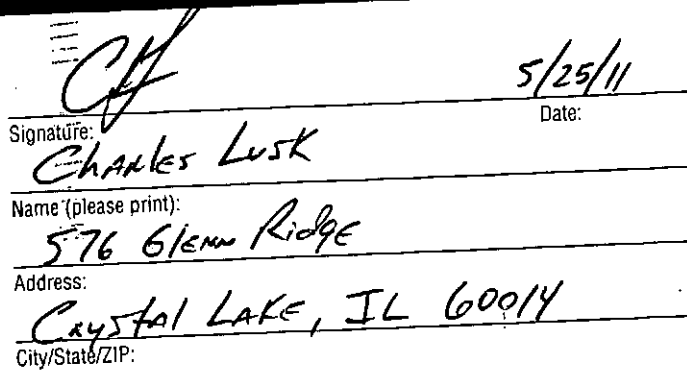 5/25/11
Signature: Date:
Charles Lusk
Name (please print):
576 Glenn Ridge
Address:
Crystal Lake, IL 60014
City/State/ZIP: